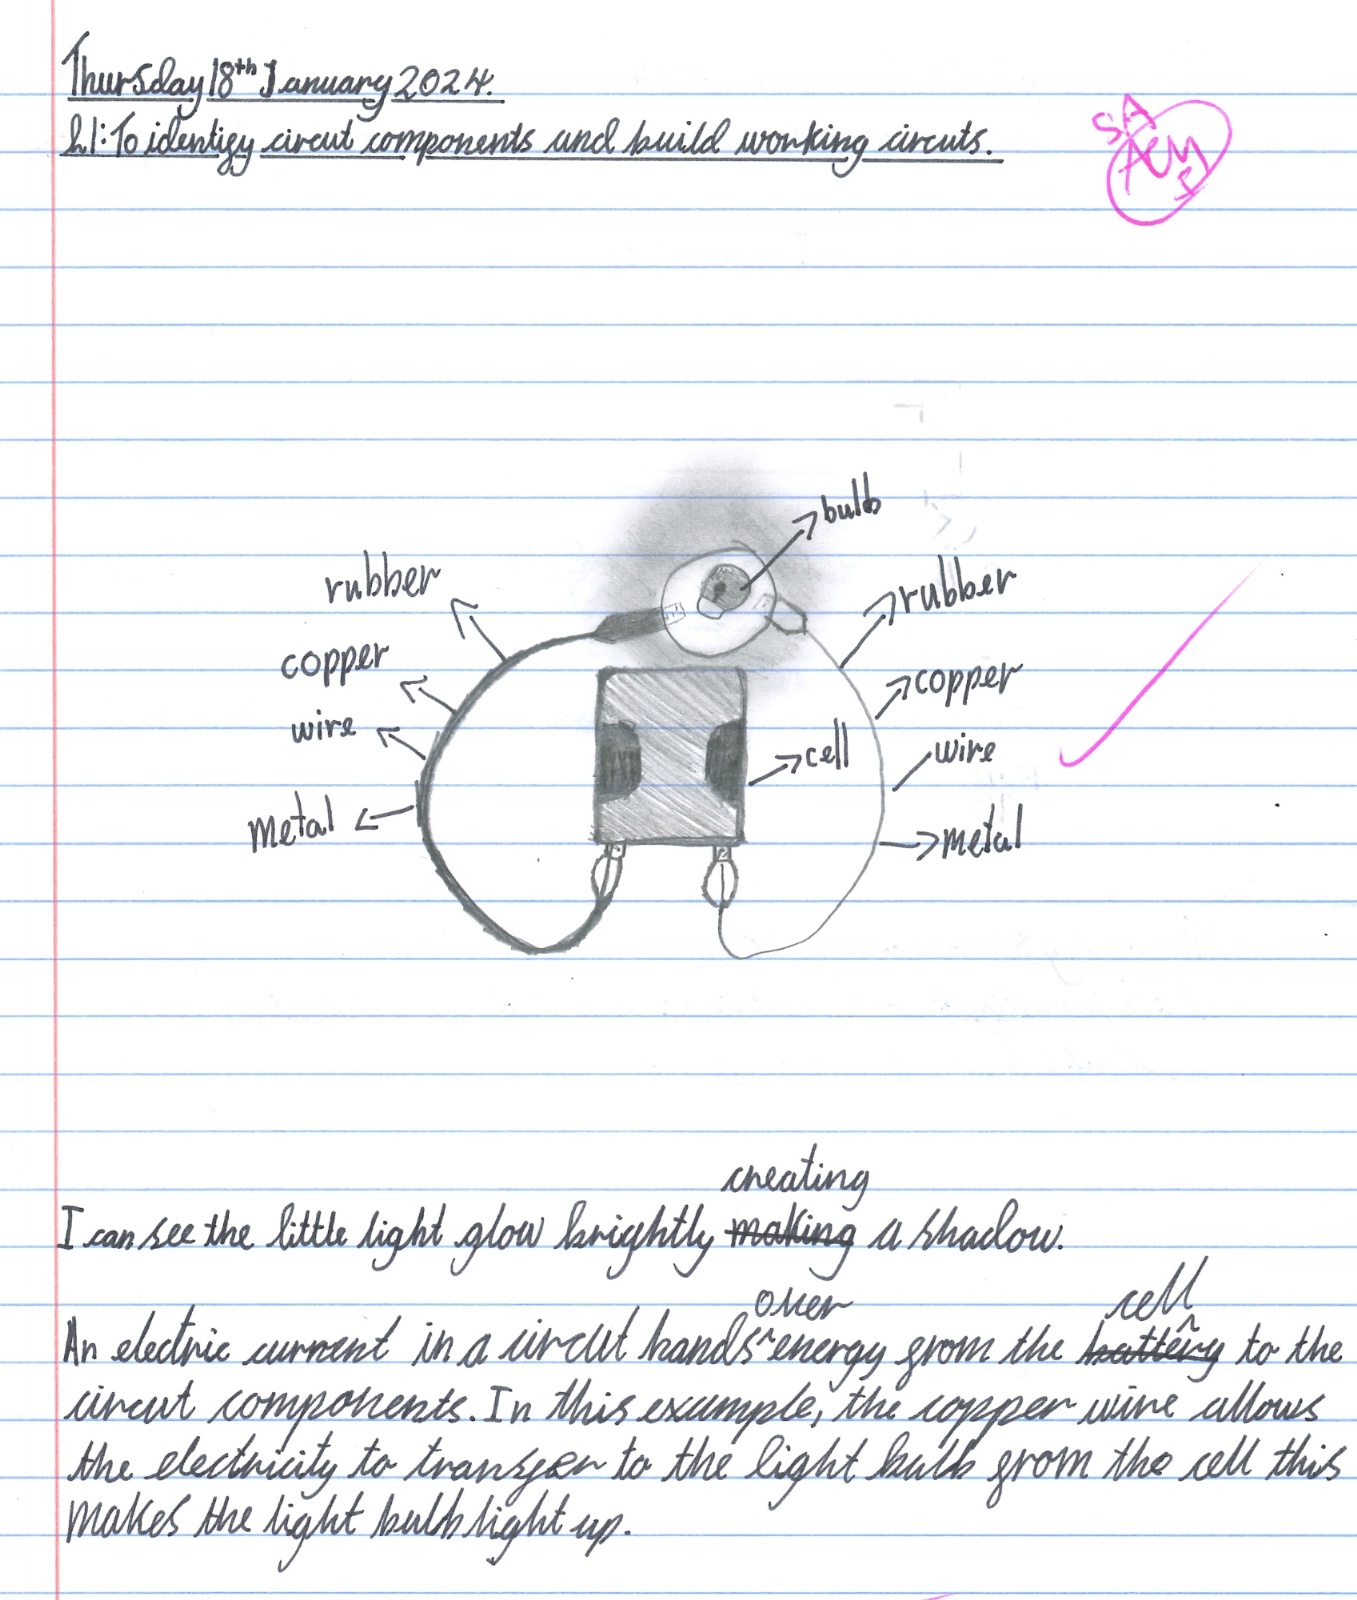 Thursday 18th January 2024.
LI: To identify circut components and build working circuts.
SA
bulb
rubber
rubber
copper
copper
wire
wire
cell
metal
metal
creating
I can see the little light glow brightly making a shadow.
over cell
An electric current in a circut hands^energy from the battery to the
circut components. In this example, the copper wire allows
the electricity to transfer to the light bulb from the cell this
makes the light bulb light up.